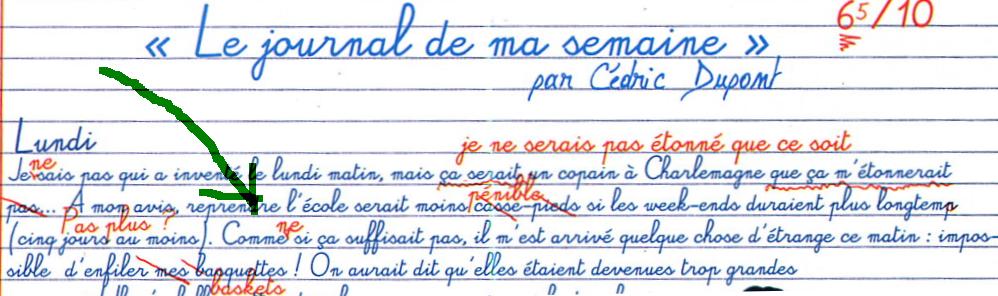 65/10
« Le journal de ma semaine »
par Cédric Dupont
Lundi
je ne serais pas étonné que ce soit
ne
Je sais pas qui a inventé le lundi matin, mais ça serait un copain à Charlemagne que ça m'étonnerait
pénible
pas... À mon avis, reprendre l'école serait moins casse-pieds si les week-ends duraient plus longtemp
Pas plus ?
ne
(cinq jours au moins). Comme si ça suffisait pas, il m'est arrivé quelque chose d'étrange ce matin : impos-
sible d'enfiler mes basquettes ! On aurait dit qu'elles étaient devenues trop grandes
baskets